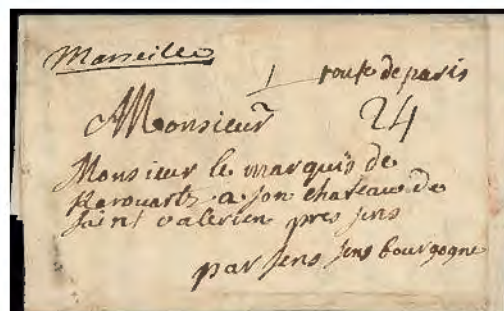 Marseille
route de paris
Monsieur
24
Monsieur le marquis de
a son chateau de
saint valerien pres sens
par sens sens bourgogne